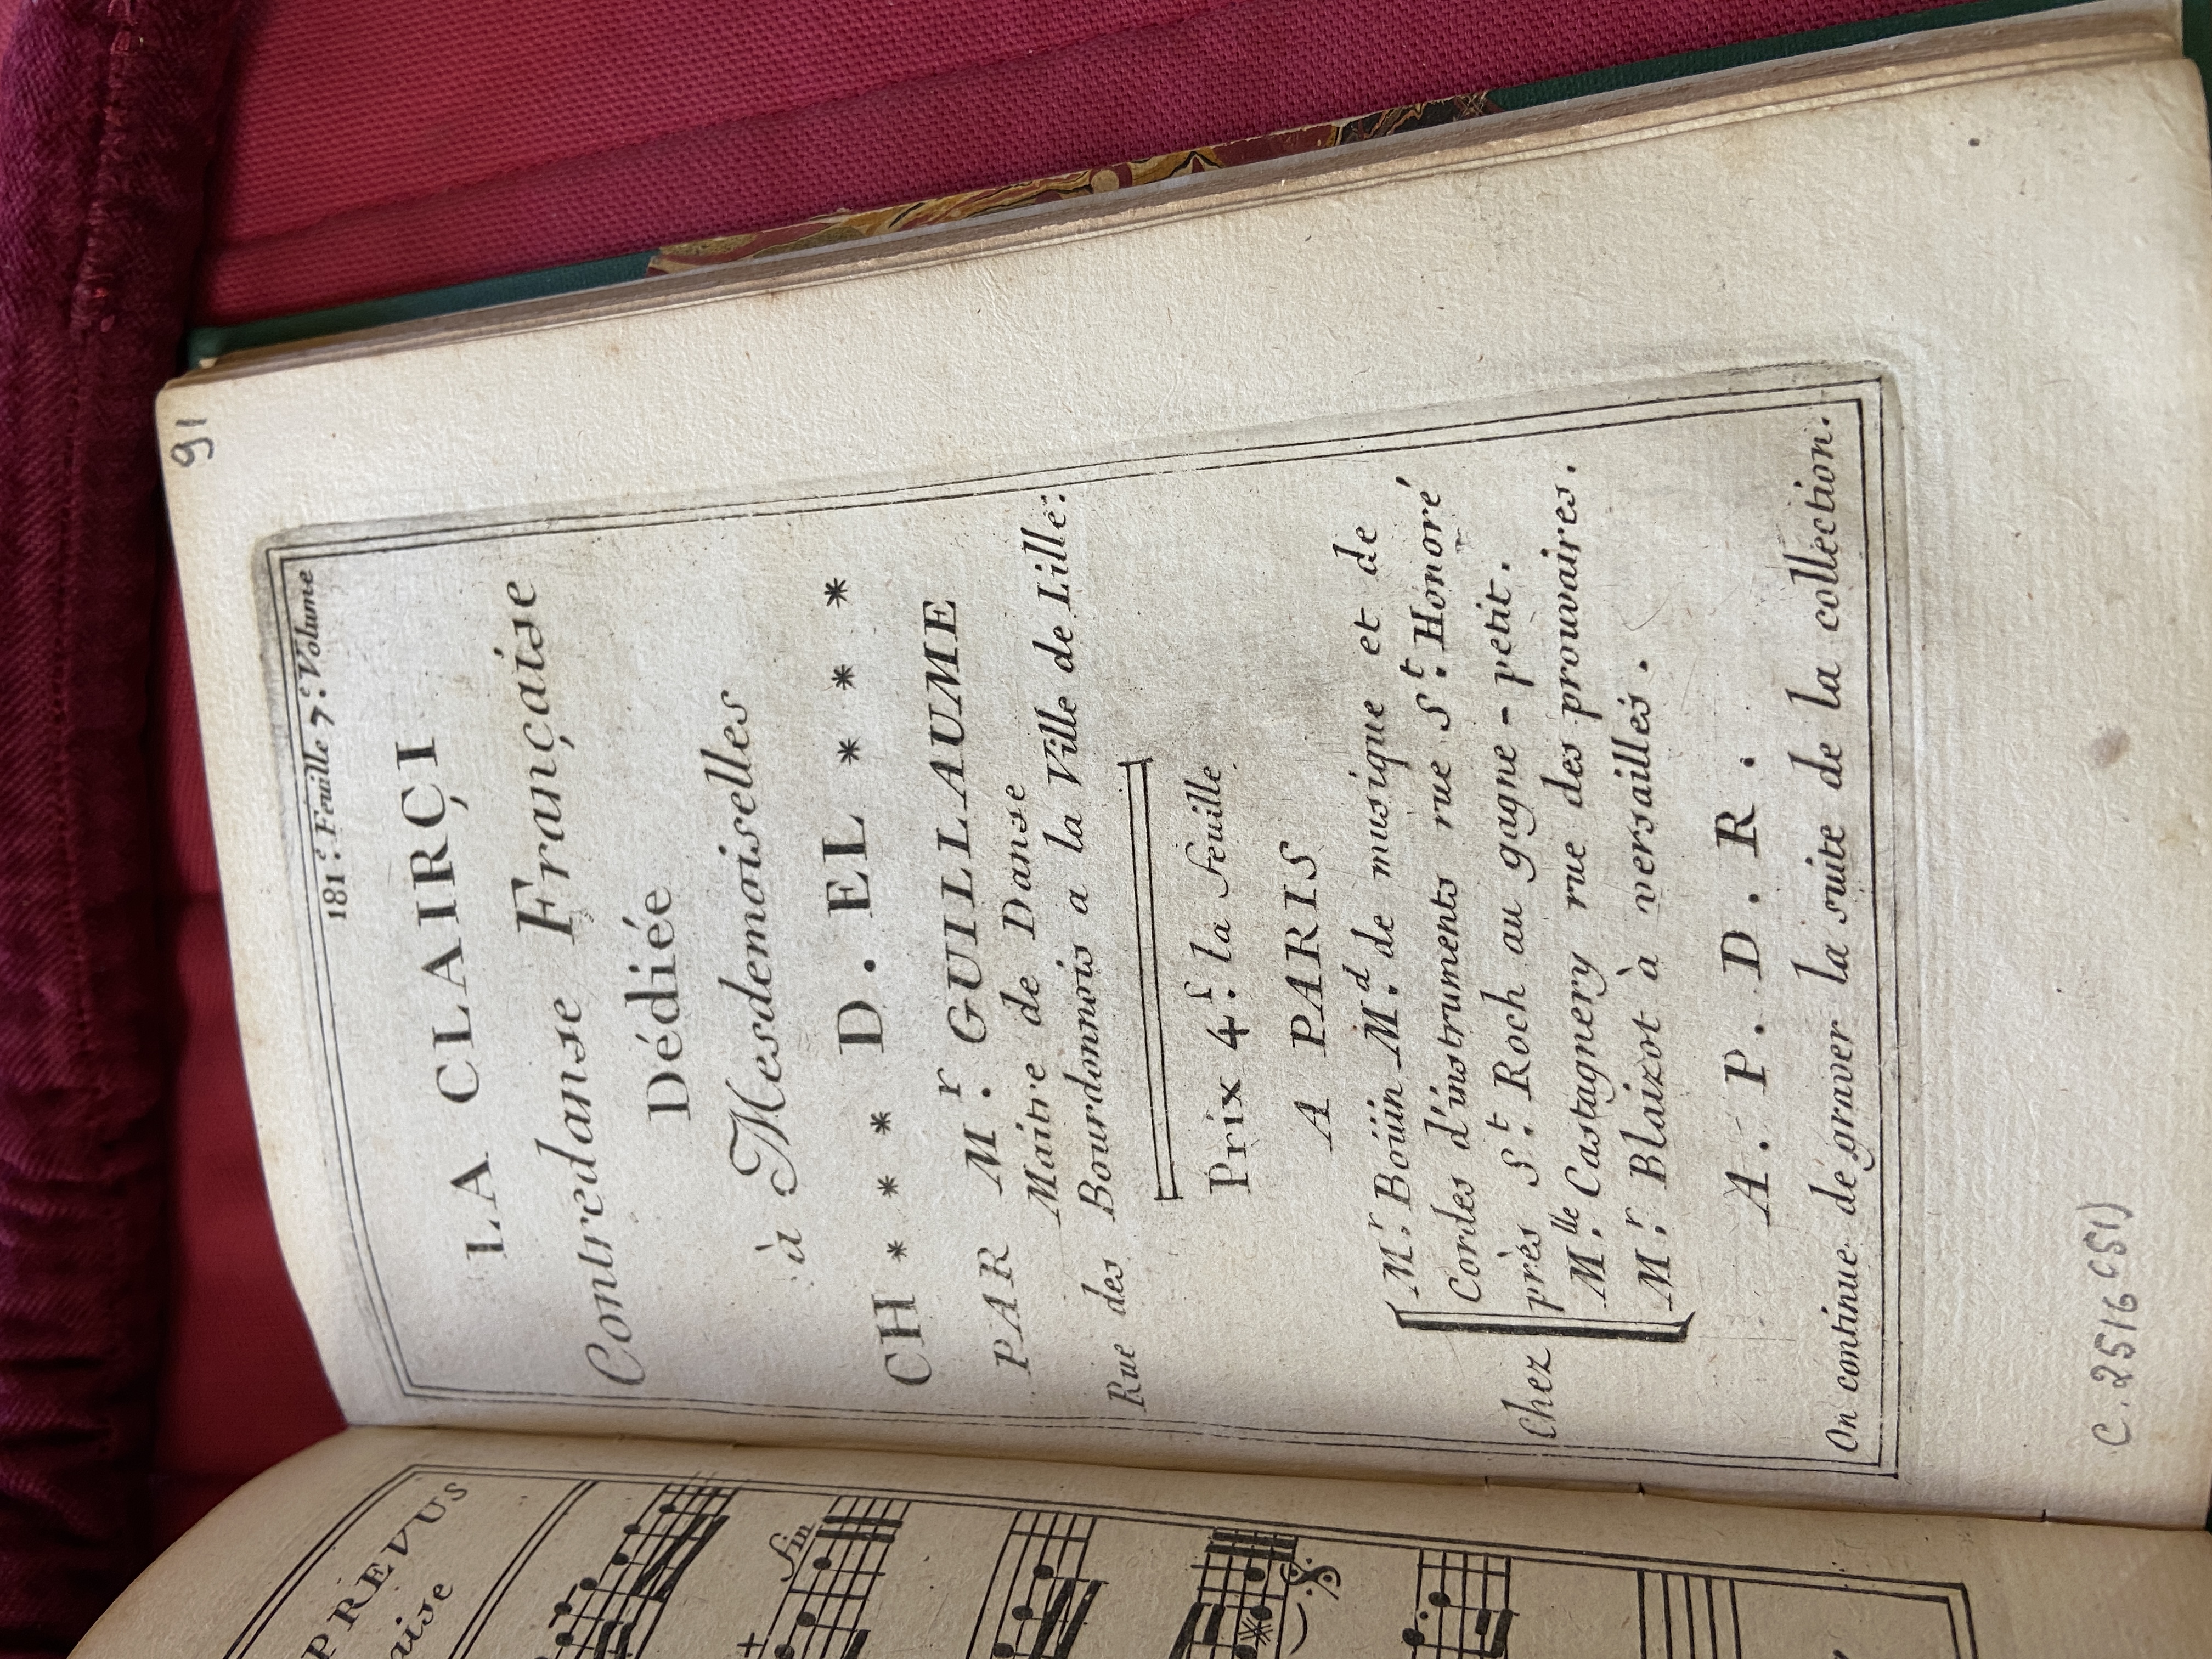 91
181.e Feuille 7.e Volume
LA CLAIRÇI
Contredanse Française
Dédiée
à Mesdemoiselles
CH * * * D. EL * * *
PAR M.r GUILLAUME
Maitre de Danse
Rue des Bourdonnois a la Ville de Lille.
Prix 4.s la feuille
A PARIS
Chez
M.r Boüin M.d de musique et de
Cordes d'instruments rue S.t Honoré
près S.t Roch au gagne-petit.
M.lle Castagnery rue des prouvaires.
M.r Blaizot à versailles.
A. P. D. R.
On continue de graver la suite de la collection.
C. 2516 (51)
PREVUS
aise
fin